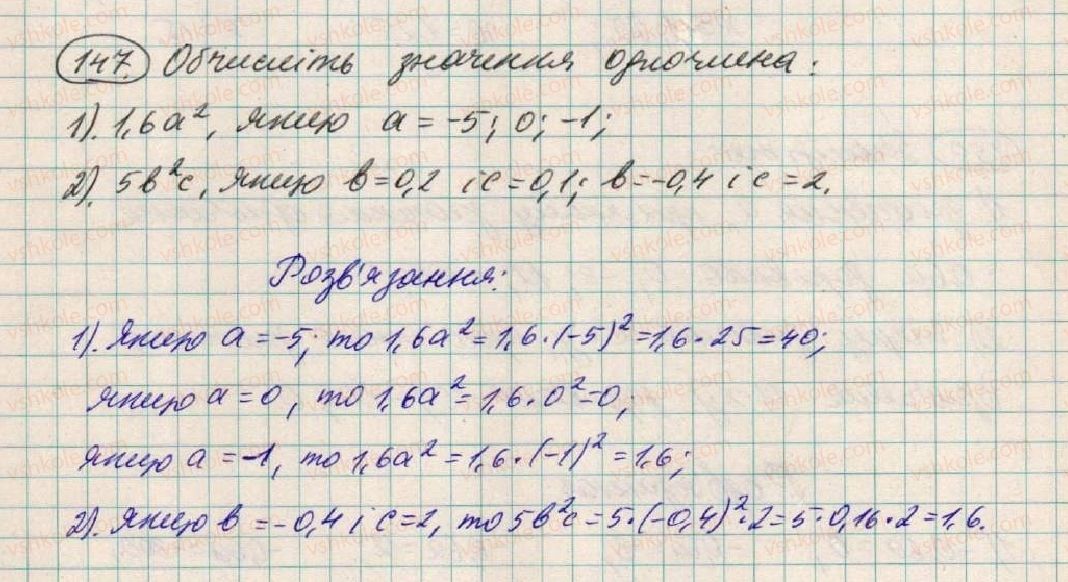 147. Обчисліть значення одночлена:
1). 1,6a², якщо a = -5; 0; -1;
2). 5в²с, якщо в = 0,2 і с = 0,1; в = -0,4 і с = 2.
Розв'язання:
1). Якщо a = -5, то 1,6a² = 1,6 · (-5)² = 1,6 · 25 = 40;
якщо a = 0, то 1,6a² = 1,6 · 0² = 0;
якщо a = -1, то 1,6a² = 1,6 · (-1)² = 1,6;
2). Якщо в = -0,4 і с = 2, то 5в²с = 5 · (-0,4)² · 2 = 5 · 0,16 · 2 = 1,6.